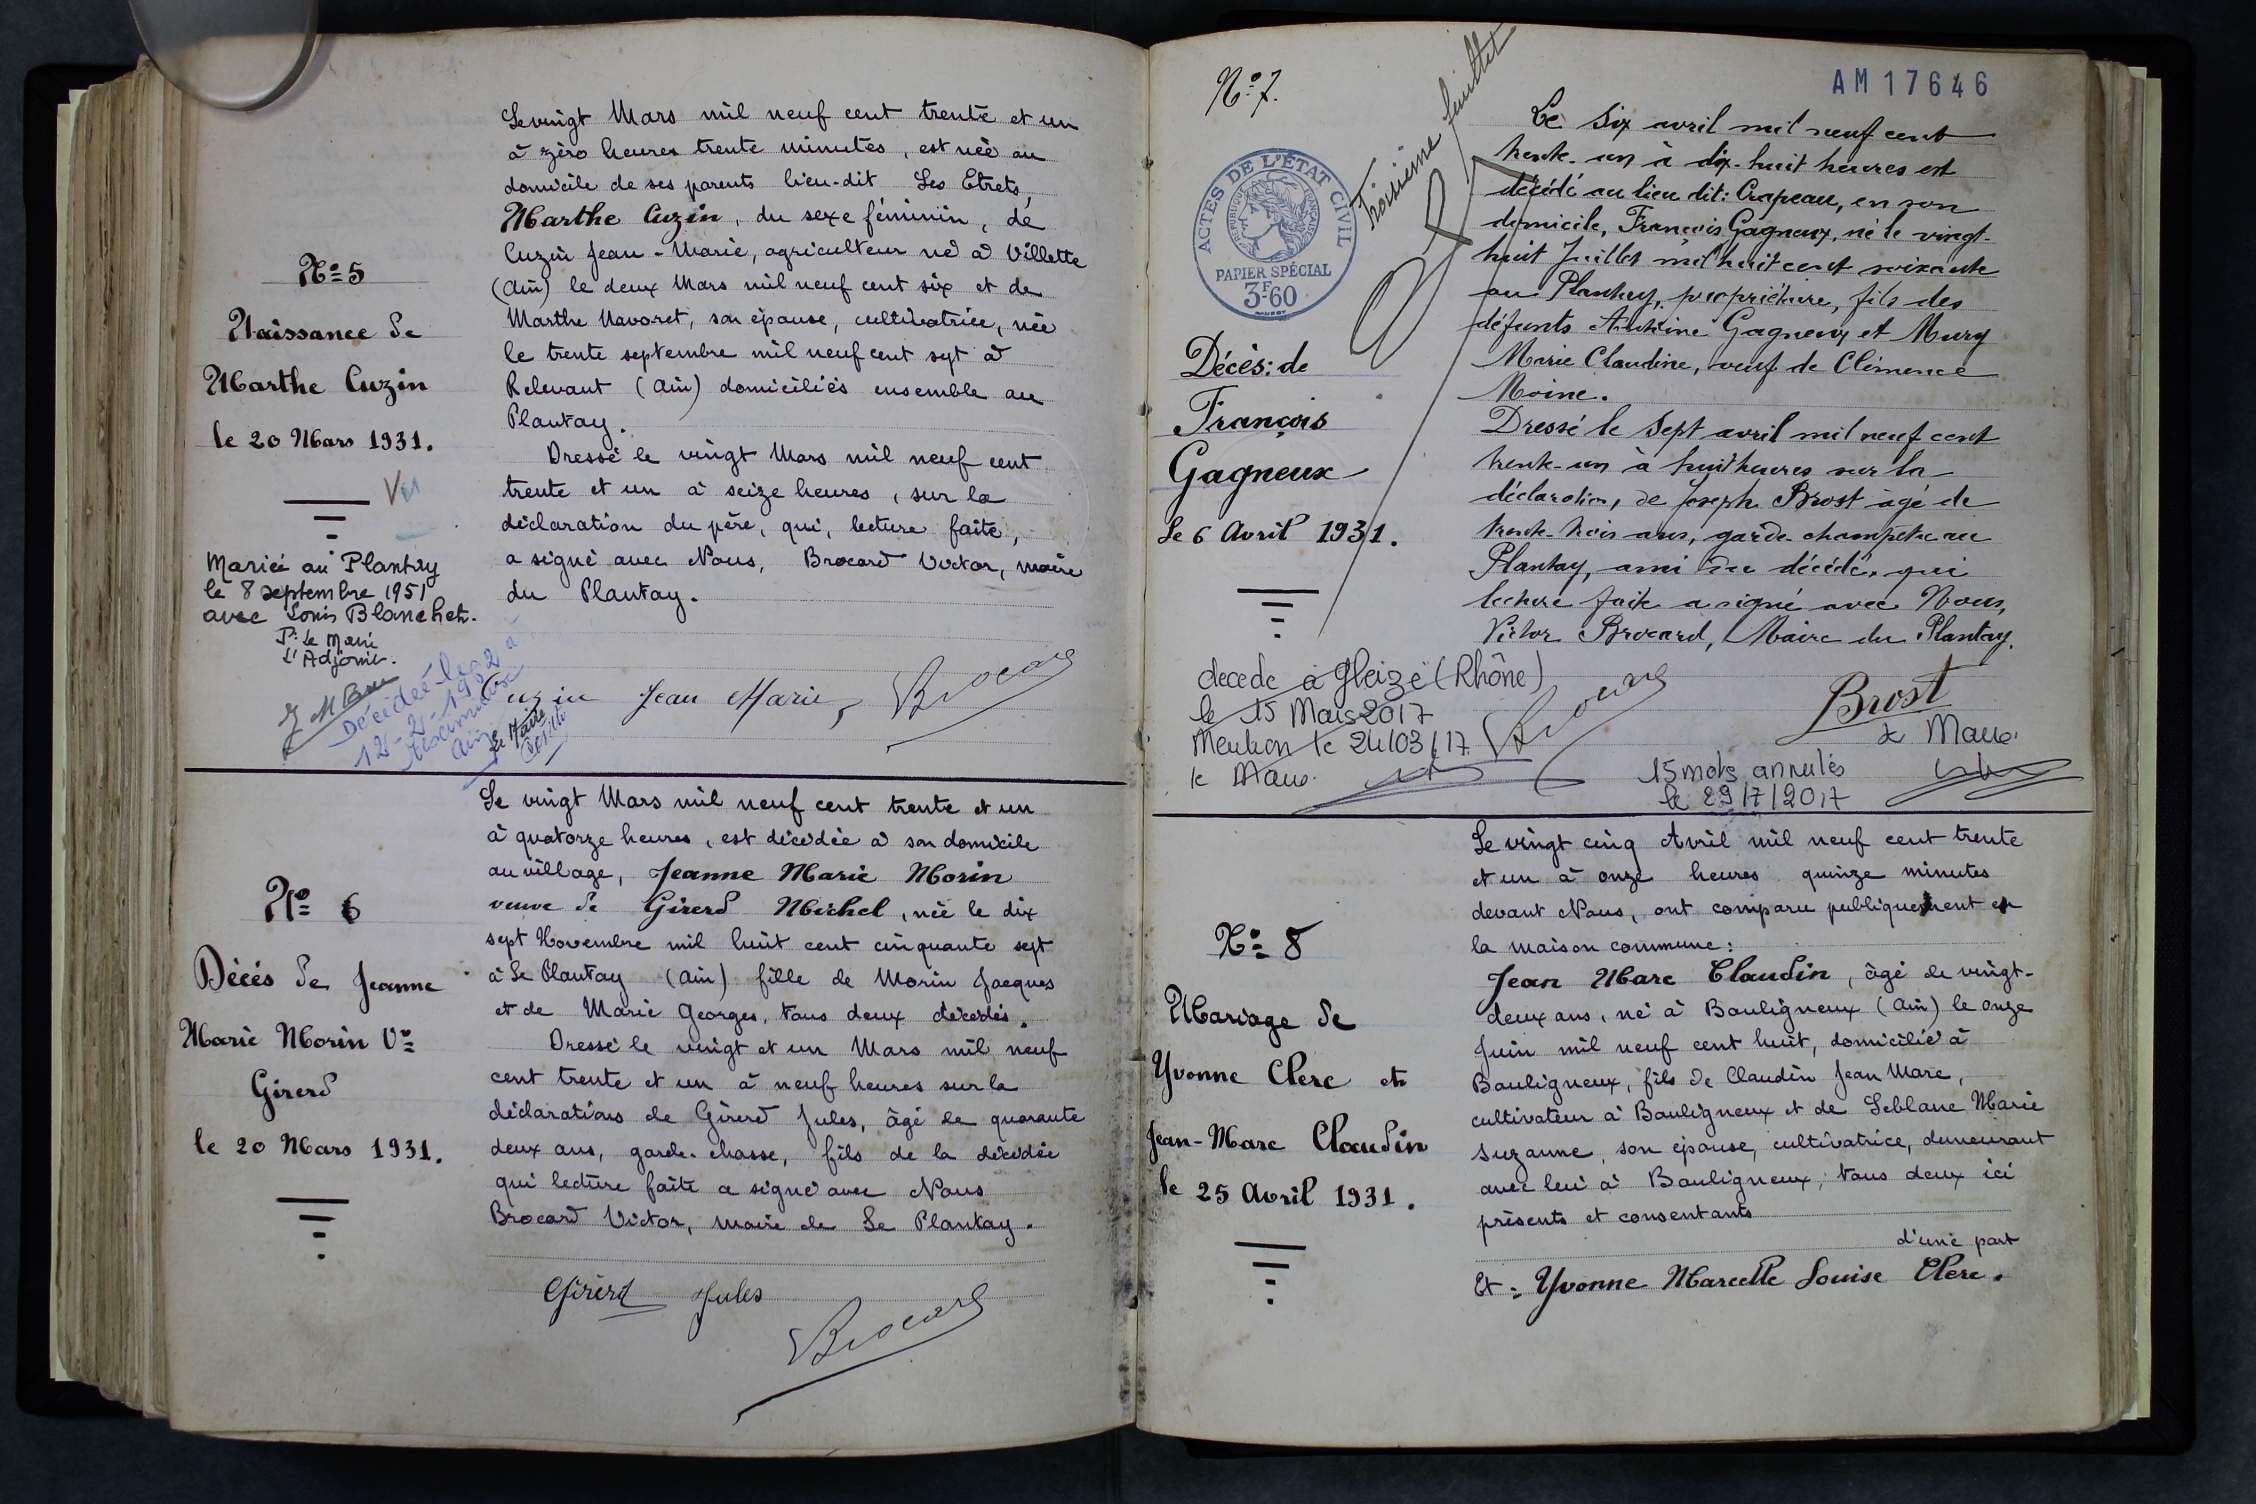 Le vingt Mars mil neuf cent trente et un
à zéro heures trente minutes, est née au
domicile de ses parents lieu-dit Les Etrets,
Marthe Cuzin, du sexe féminin, de
Cuzin Jean-Marie, agriculteur né à Villette
(Ain) le deux Mars mil neuf cent six et de
Marthe Navoret, son épouse, cultivatrice, née
le trente septembre mil neuf cent sept à
Relevant (Ain) domiciliés ensemble au
Plantay.
Dressé le vingt Mars mil neuf cent
trente et un à seize heures, sur la
déclaration du père, qui, lecture faite,
a signé avec Nous, Brocard Victor, maire
du Plantay.
Cuzin Jean Marie, Brocard
Nº 5
Naissance de
Marthe Cuzin
le 20 Mars 1931.
Vu
Mariée au Plantay
le 8 septembre 1951
avec Louis Blanchet.
Pr le Maire
L'Adjoint.
Décédée le
12-2-1992 à
Ain
Le Maire
Le vingt Mars mil neuf cent trente et un
à quatorze heures, est décédée à son domicile
au village, Jeanne Marie Morin
veuve de Girerd Michel, née le dix
sept Novembre mil huit cent cinquante sept
à Le Plantay (Ain) fille de Morin Jacques
et de Marie Georges, tous deux décédés.
Dressé le vingt et un Mars mil neuf
cent trente et un à neuf heures sur la
déclarations de Girerd Jules, âgé de quarante
deux ans, garde-chasse, fils de la décédée
qui lecture faite a signé avec Nous
Brocard Victor, maire de Le Plantay.
Girerd Jules
Brocard
Nº 6
Décés de Jeanne
Marie Morin Vve
Girerd
le 20 Mars 1931.
Nº 7.
Troisième feuillet
AM 17646
ACTES DE L'ÉTAT CIVIL
RÉPUBLIQUE FRANÇAISE
PAPIER SPÉCIAL
3F60
Le Six avril mil neuf cent
trente-un à dix-huit heures est
décédé au lieu dit: Crapeau, en son
domicile, François Gagneux, né le vingt-
huit Juillet mil huit cent soixante
au Plantay, propriétaire, fils des
défunts Antoine Gagneux et Mury
Marie Claudine, veuf de Clémence
Moine.
Dressé le Sept avril mil neuf cent
trente-un à huit heures sur la
déclaration, de Joseph Brost âgé de
trente-trois ans, garde champêtre au
Plantay, ami du décédé, qui
lecture faite a signé avec Nous,
Victor Brocard, Maire du Plantay.
Décès: de
François
Gagneux
Le 6 Avril 1931.
decede à Gleizé (Rhône)
le 15 Mars 2017
Mention le 24/03/17
le Maire.
Brocard
Brost
Le Maire
15 mots annulés
le 29/7/2017
Le vingt cinq Avril mil neuf cent trente
et un à onze heures quinze minutes
devant Nous, ont comparu publiquement en
la maison commune:
Jean Marc Claudin, âgé de vingt-
deux ans, né à Bouligneux (Ain) le onze
Juin mil neuf cent huit, domicilié à
Bouligneux, fils de Claudin Jean Marc,
cultivateur à Bouligneux et de Leblanc Marie
Suzanne, son épouse, cultivatrice, demeurant
avec lui à Bouligneux, tous deux ici
présents et consentants
d'une part
Et: Yvonne Marcelle Louise Clerc.
Nº 8
Mariage de
Yvonne Clerc et
Jean-Marc Claudin
le 25 Avril 1931.